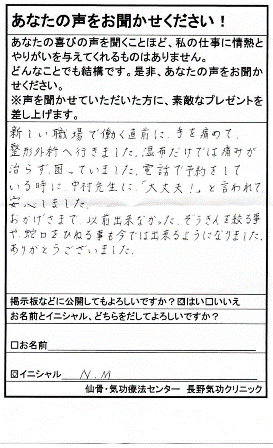 あなたの声をお聞かせください！
あなたの喜びの声を聞くことほど、私の仕事に情熱と
やりがいを与えてくれるものはありません。
どんなことでも結構です。是非、あなたの声をお聞か
せください。
※声を聞かせていただいた方に、素敵なプレゼントを
差し上げます。
新しい職場で働く直前に、手を痛めて、
整形外科へ行きました。湿布だけでは痛みが
治らず、困っていました。電話で予約をして
いる時に、中村先生に、「大丈夫！」と言われて、
安心しました。
おかげさまで、以前出来なかった、ぞうきんを絞る事
や、蛇口をひねる事も今では出来るようになりました。
ありがとうございました。
掲示板などに公開してもよろしいですか？☑はい□いいえ
お名前とイニシャル、どちらをだしてよろしいですか？
□お名前
☑イニシャル N.M
仙骨・気功療法センター 長野気功クリニック